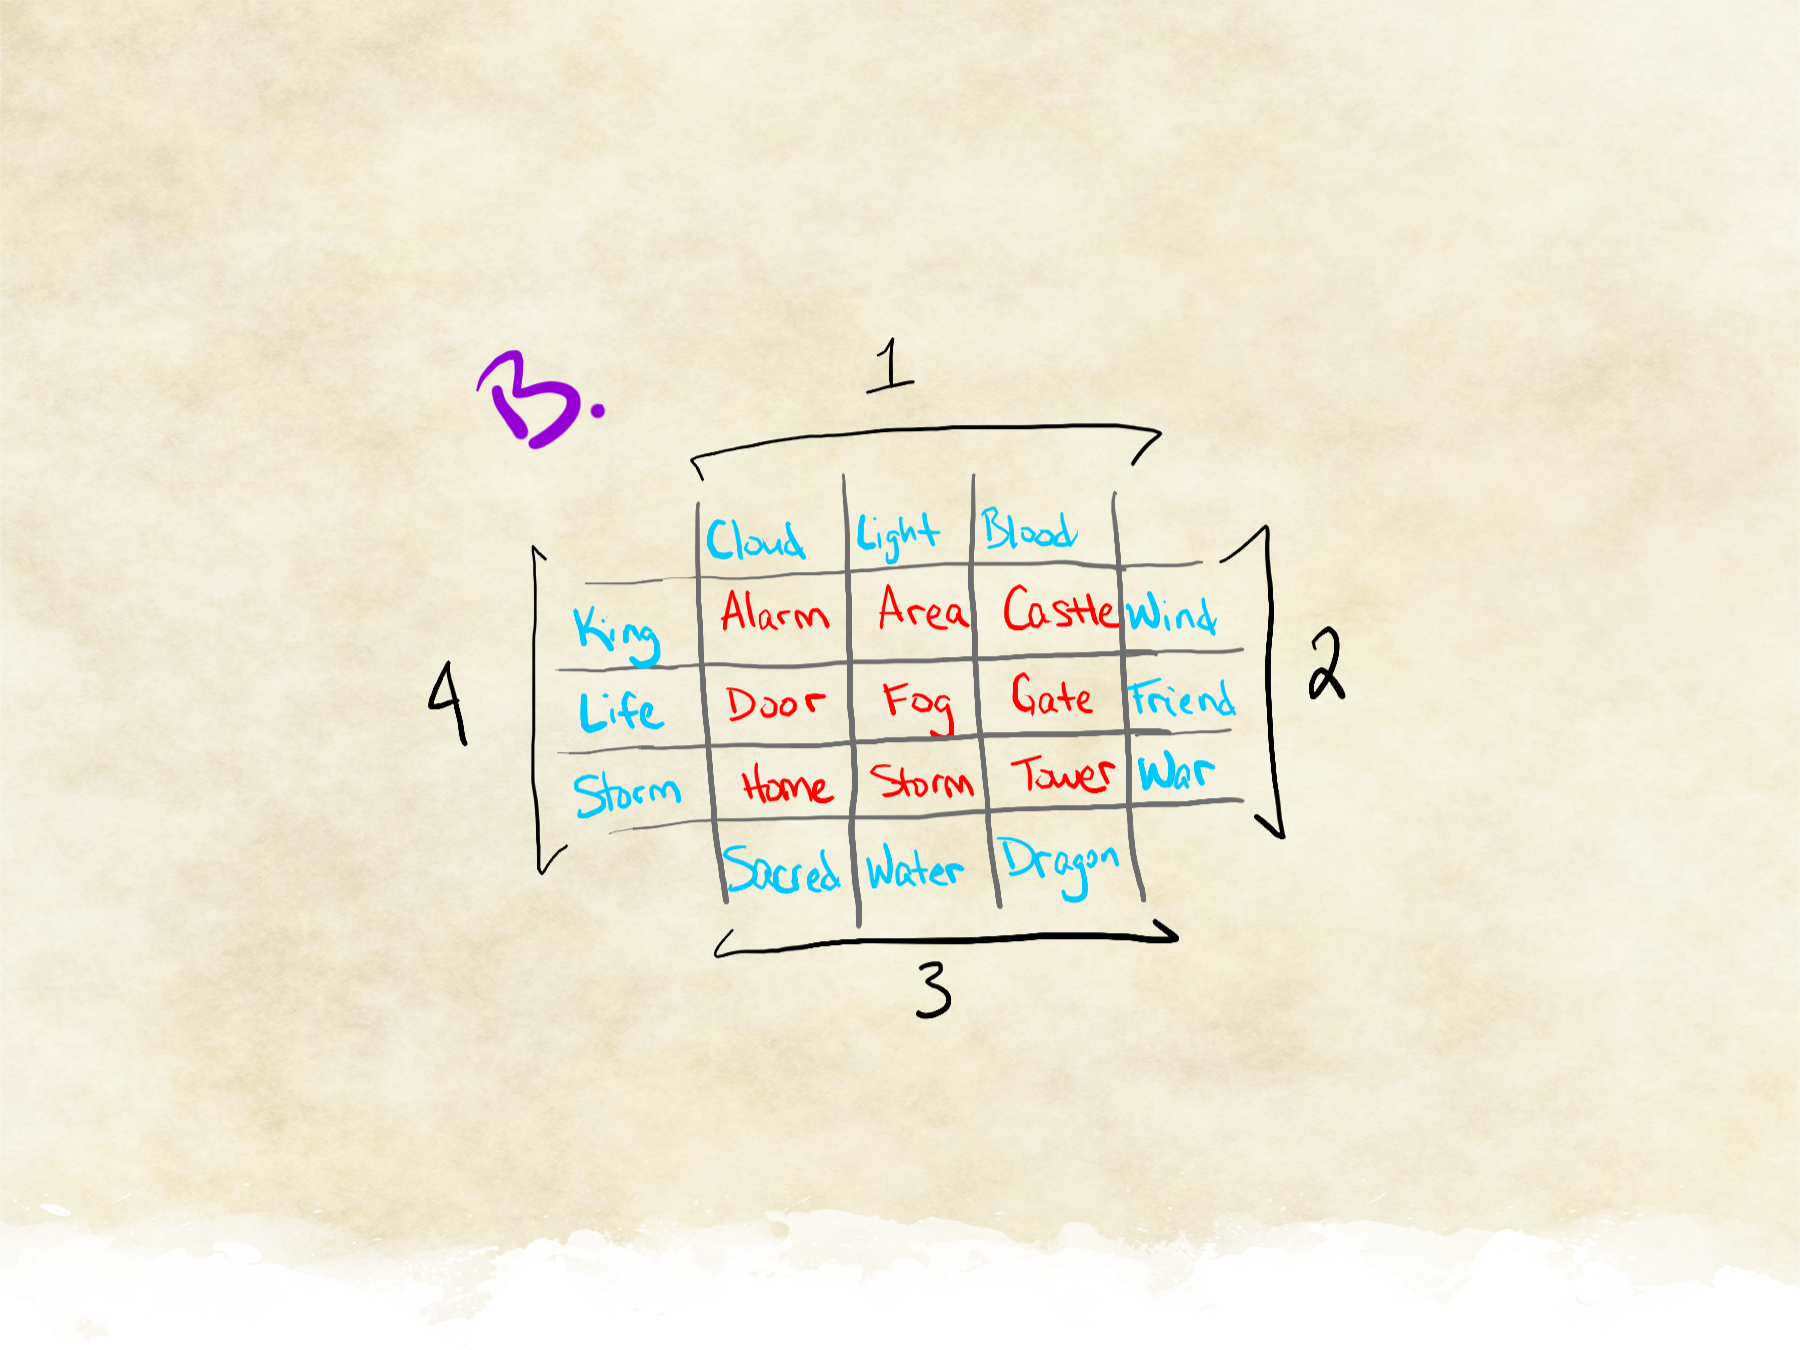 B.
1
Cloud Light Blood
King Alarm Area Castle Wind
4 Life Door Fog Gate Friend 2
Storm Home Storm Tower War
Sacred Water Dragon
3